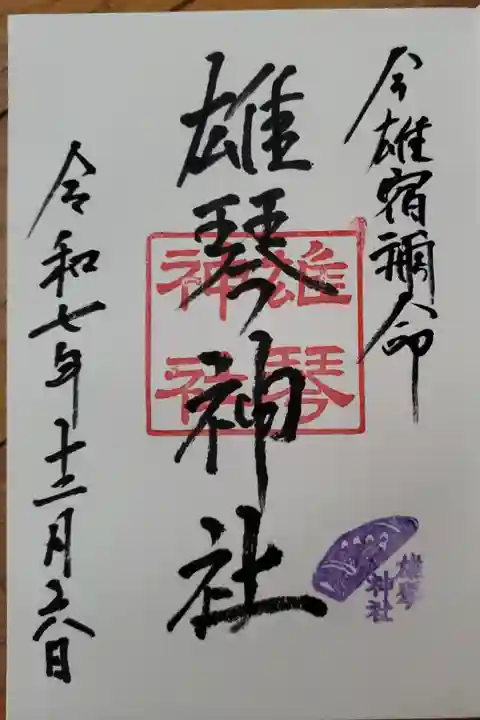 今雄宿禰命
雄琴神社
雄琴
神社
令和七年十二月二八日
雄琴
神社